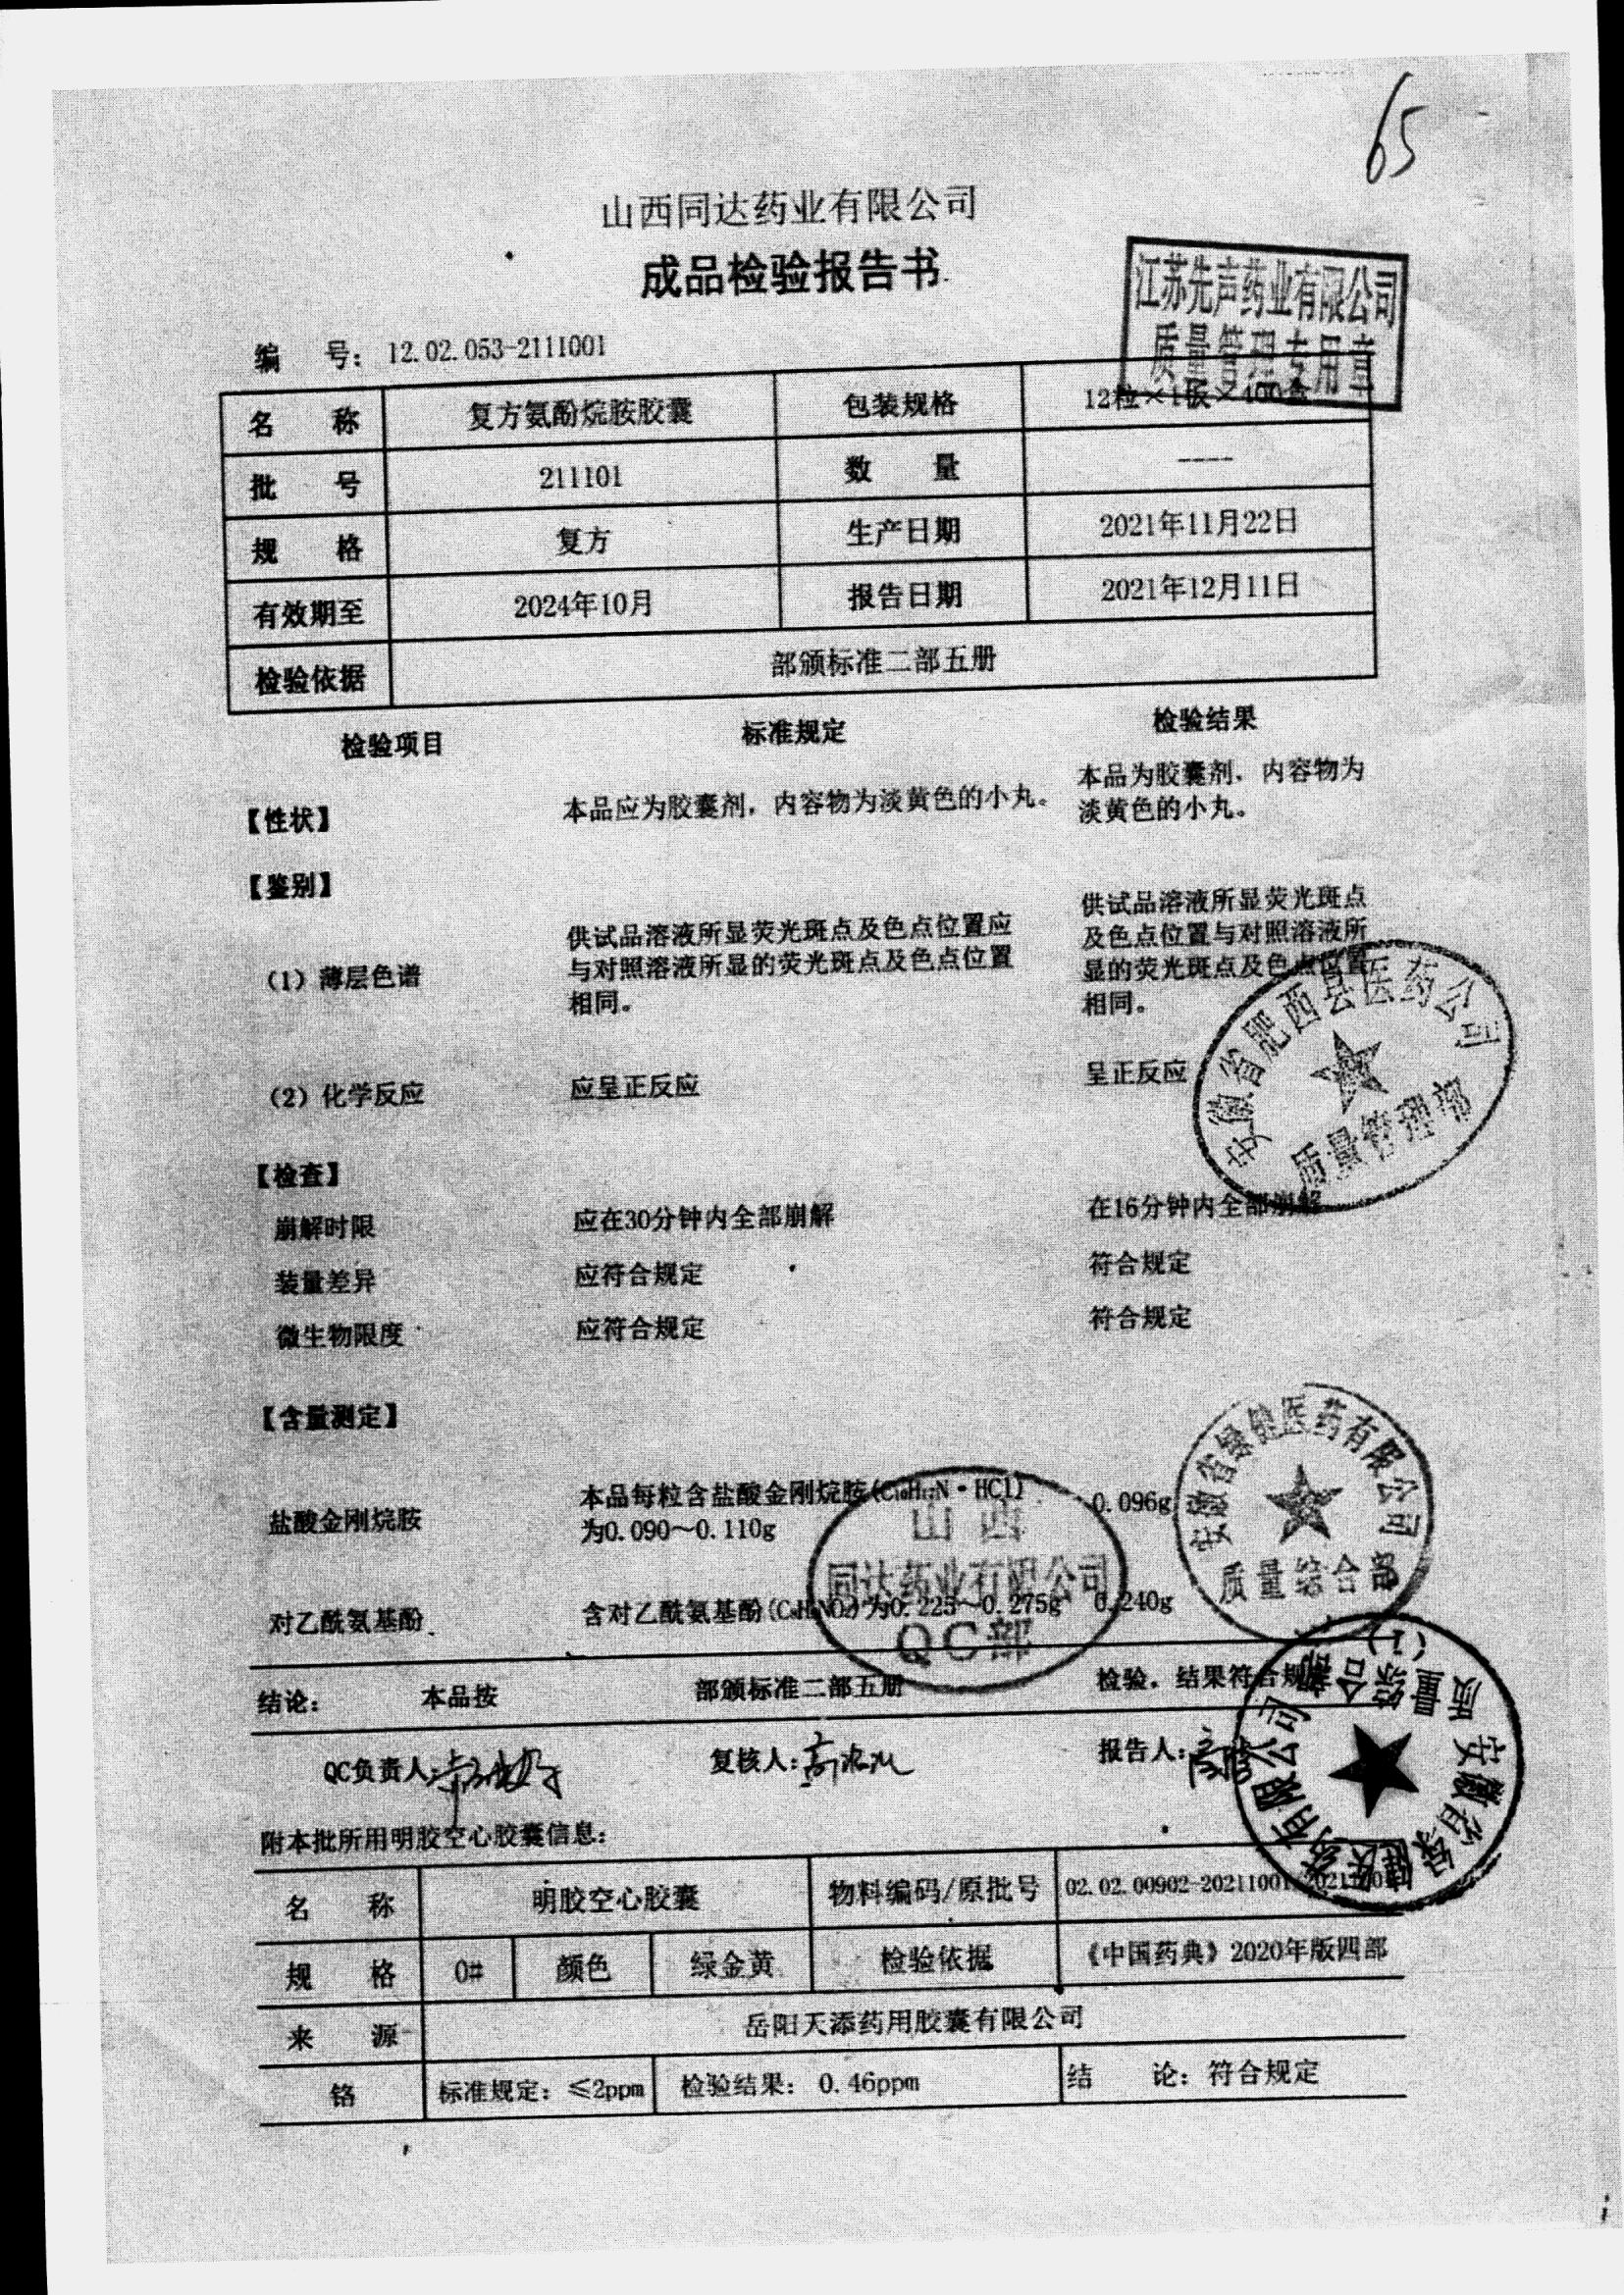 65
山西同达药业有限公司
成品检验报告书
江苏先声药业有限公司
质量管理专用章
编 号：12.02.053-2111001
名 称 复方氨酚烷胺胶囊 包装规格 12粒×1板×400盒
批 号 211101 数 量 ----
规 格 复方 生产日期 2021年11月22日
有效期至 2024年10月 报告日期 2021年12月11日
检验依据 部颁标准二部五册
检验项目 标准规定 检验结果
【性状】 本品应为胶囊剂，内容物为淡黄色的小丸。 本品为胶囊剂，内容物为
淡黄色的小丸。
【鉴别】
（1）薄层色谱 供试品溶液所显荧光斑点及色点位置应 供试品溶液所显荧光斑点
与对照溶液所显的荧光斑点及色点位置 及色点位置与对照溶液所
相同。 显的荧光斑点及色点位置
相同。
（2）化学反应 应呈正反应 呈正反应
安徽省肥西县医药公司
质量管理部
【检查】
崩解时限 应在30分钟内全部崩解 在16分钟内全部崩解
装量差异 应符合规定 符合规定
微生物限度 应符合规定 符合规定
【含量测定】
盐酸金刚烷胺 本品每粒含盐酸金刚烷胺(C₁₀H₁₇N·HCl) 0.096g
为0.090～0.110g
安徽省绿健医药有限公司
质量综合部
山西
同达药业有限公司
QC部
对乙酰氨基酚 含对乙酰氨基酚(C₈H₉NO₂)为0.225～0.275g 0.240g
结论： 本品按 部颁标准二部五册 检验，结果符合规
安徽省绿健医药有限公司
质量综合部
(1)
QC负责人： 复核人： 报告人：
附本批所用明胶空心胶囊信息：
名 称 明胶空心胶囊 物料编码/原批号 02.02.00902-2021100
规 格 0# 颜色 绿金黄 检验依据 《中国药典》2020年版四部
来 源 岳阳天添药用胶囊有限公司
铬 标准规定：≤2ppm 检验结果：0.46ppm 结 论：符合规定